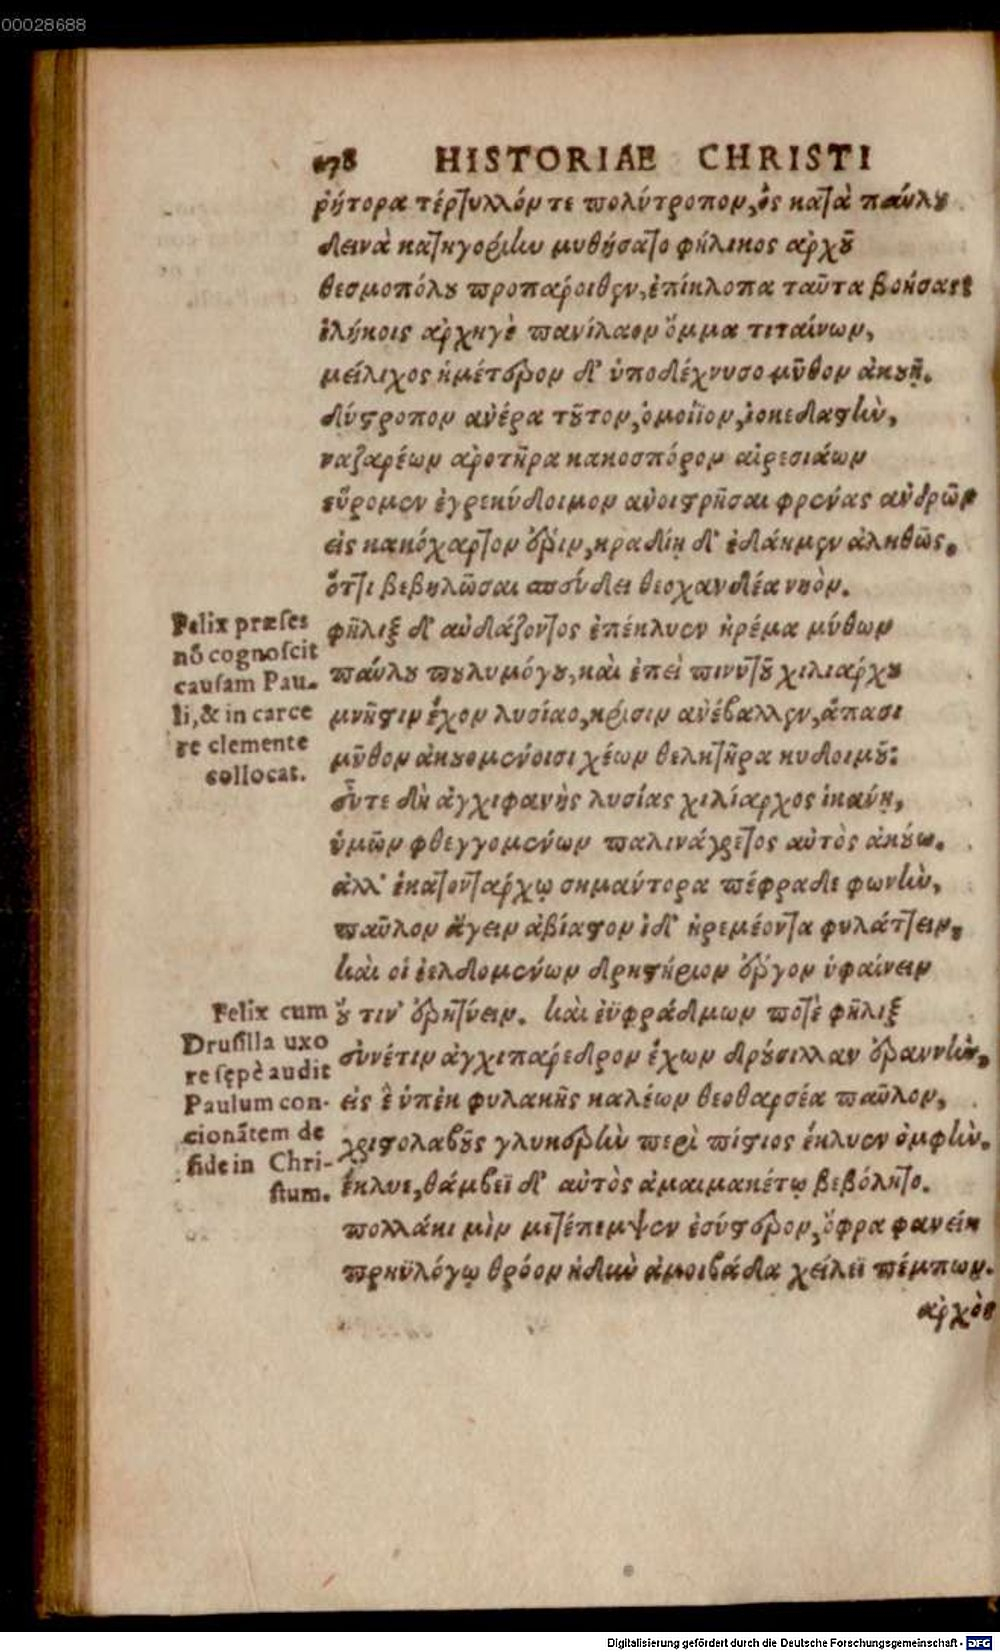 00028688
178 HISTORIAE CHRISTI
ῥήτορα τέρτυλλόν τε πολύτροπον, ὃς κατὰ παύλου
δεινὰ κατηγορίην μυθήσατο φήλικος ἀρχοῦ
θεσμοπόλου προπάροιθεν, ἐπίκλοπα ταῦτα βοήσας
ἱλήκοις ἀρχηγὲ πανίλαον ὄμμα τιταίνων,
μείλιχος ἡμέτερον δ' ὑποδέχνυσο μῦθον ἀκουῇ.
δύστροπον ἀνέρα τοῦτον, ὁμοίϊον,
ναζαρέων ἀροτῆρα κακοσπόρον αἱρεσιάων
εὕρομεν ἐγρεκύδοιμον ἀνοιστρῆσαι φρένας ἀνδρῶν
εἰς κακόχαρτον ἔριν, κραδίη δ' ἐδάημεν ἀληθῶς.
ὅττι βεβηλῶσαι σπεύδει θεοχανδέα νηόν.
Felix præses
nō cognoscit
causam Pau-
li, & in carce
re clemente
collocat.
φῆλιξ δ' αὐδάζοντος ἐπέκλυεν ἠρέμα μύθων
παύλου πουλυμόγου, καὶ ἐπεὶ πινυτοῦ χιλιάρχου
μνῆστιν ἔχον λυσίαο, κρίσιν ἀνέβαλλεν, ἅπασι
μῦθον ἀκουομένοισι χέων θελκτῆρα κυδοιμοῦ:
εὖτε δὴ ἀγχιφανὴς λυσίας χιλίαρχος ἱκάνῃ,
ὑμῶν φθεγγομένων παλινάγρετος αὐτὸς ἀκούω.
ἀλλ' ἑκατοντάρχῳ σημάντορα πέφραδε φωνὴν,
παῦλον ἄγειν ἀβίαστον ἰδ' ἠρεμέοντα φυλάττειν,
καὶ οἱ ἐελδομένων δρηστήριον ἔργον ὑφαίνειν
Felix cum
Drusilla uxo
re sępè audit
Paulum con-
cionātem de
fide in Chri-
stum.
οὔ τιν' ἐρητύειν. καὶ ἐϋφράδμων ποτὲ φῆλιξ
συνέτιν ἀγχιπάρεδρον ἔχων δρούσιλλαν ἐραννὴν,
εἰς ἓ ὑπὲκ φυλακῆς καλέων θεοθαρσέα παῦλον,
χριστολαβοῦς γλυκερὴν περὶ πίστιος ἔκλυεν ὀμφὴν.
ἔκλυε, θάμβεϊ δ' αὐτὸς ἀμαιμακέτῳ βεβόλητο.
πολλάκι μὶν μετέπεμψεν ἐσύστερον, ὄφρα φανείη
πρηϋλόγῳ θρόον ἡδὺν ἀμοιβάδα χείλεϊ πέμπων.
ἀρχὸς
Digitalisierung gefördert durch die Deutsche Forschungsgemeinschaft - DFG